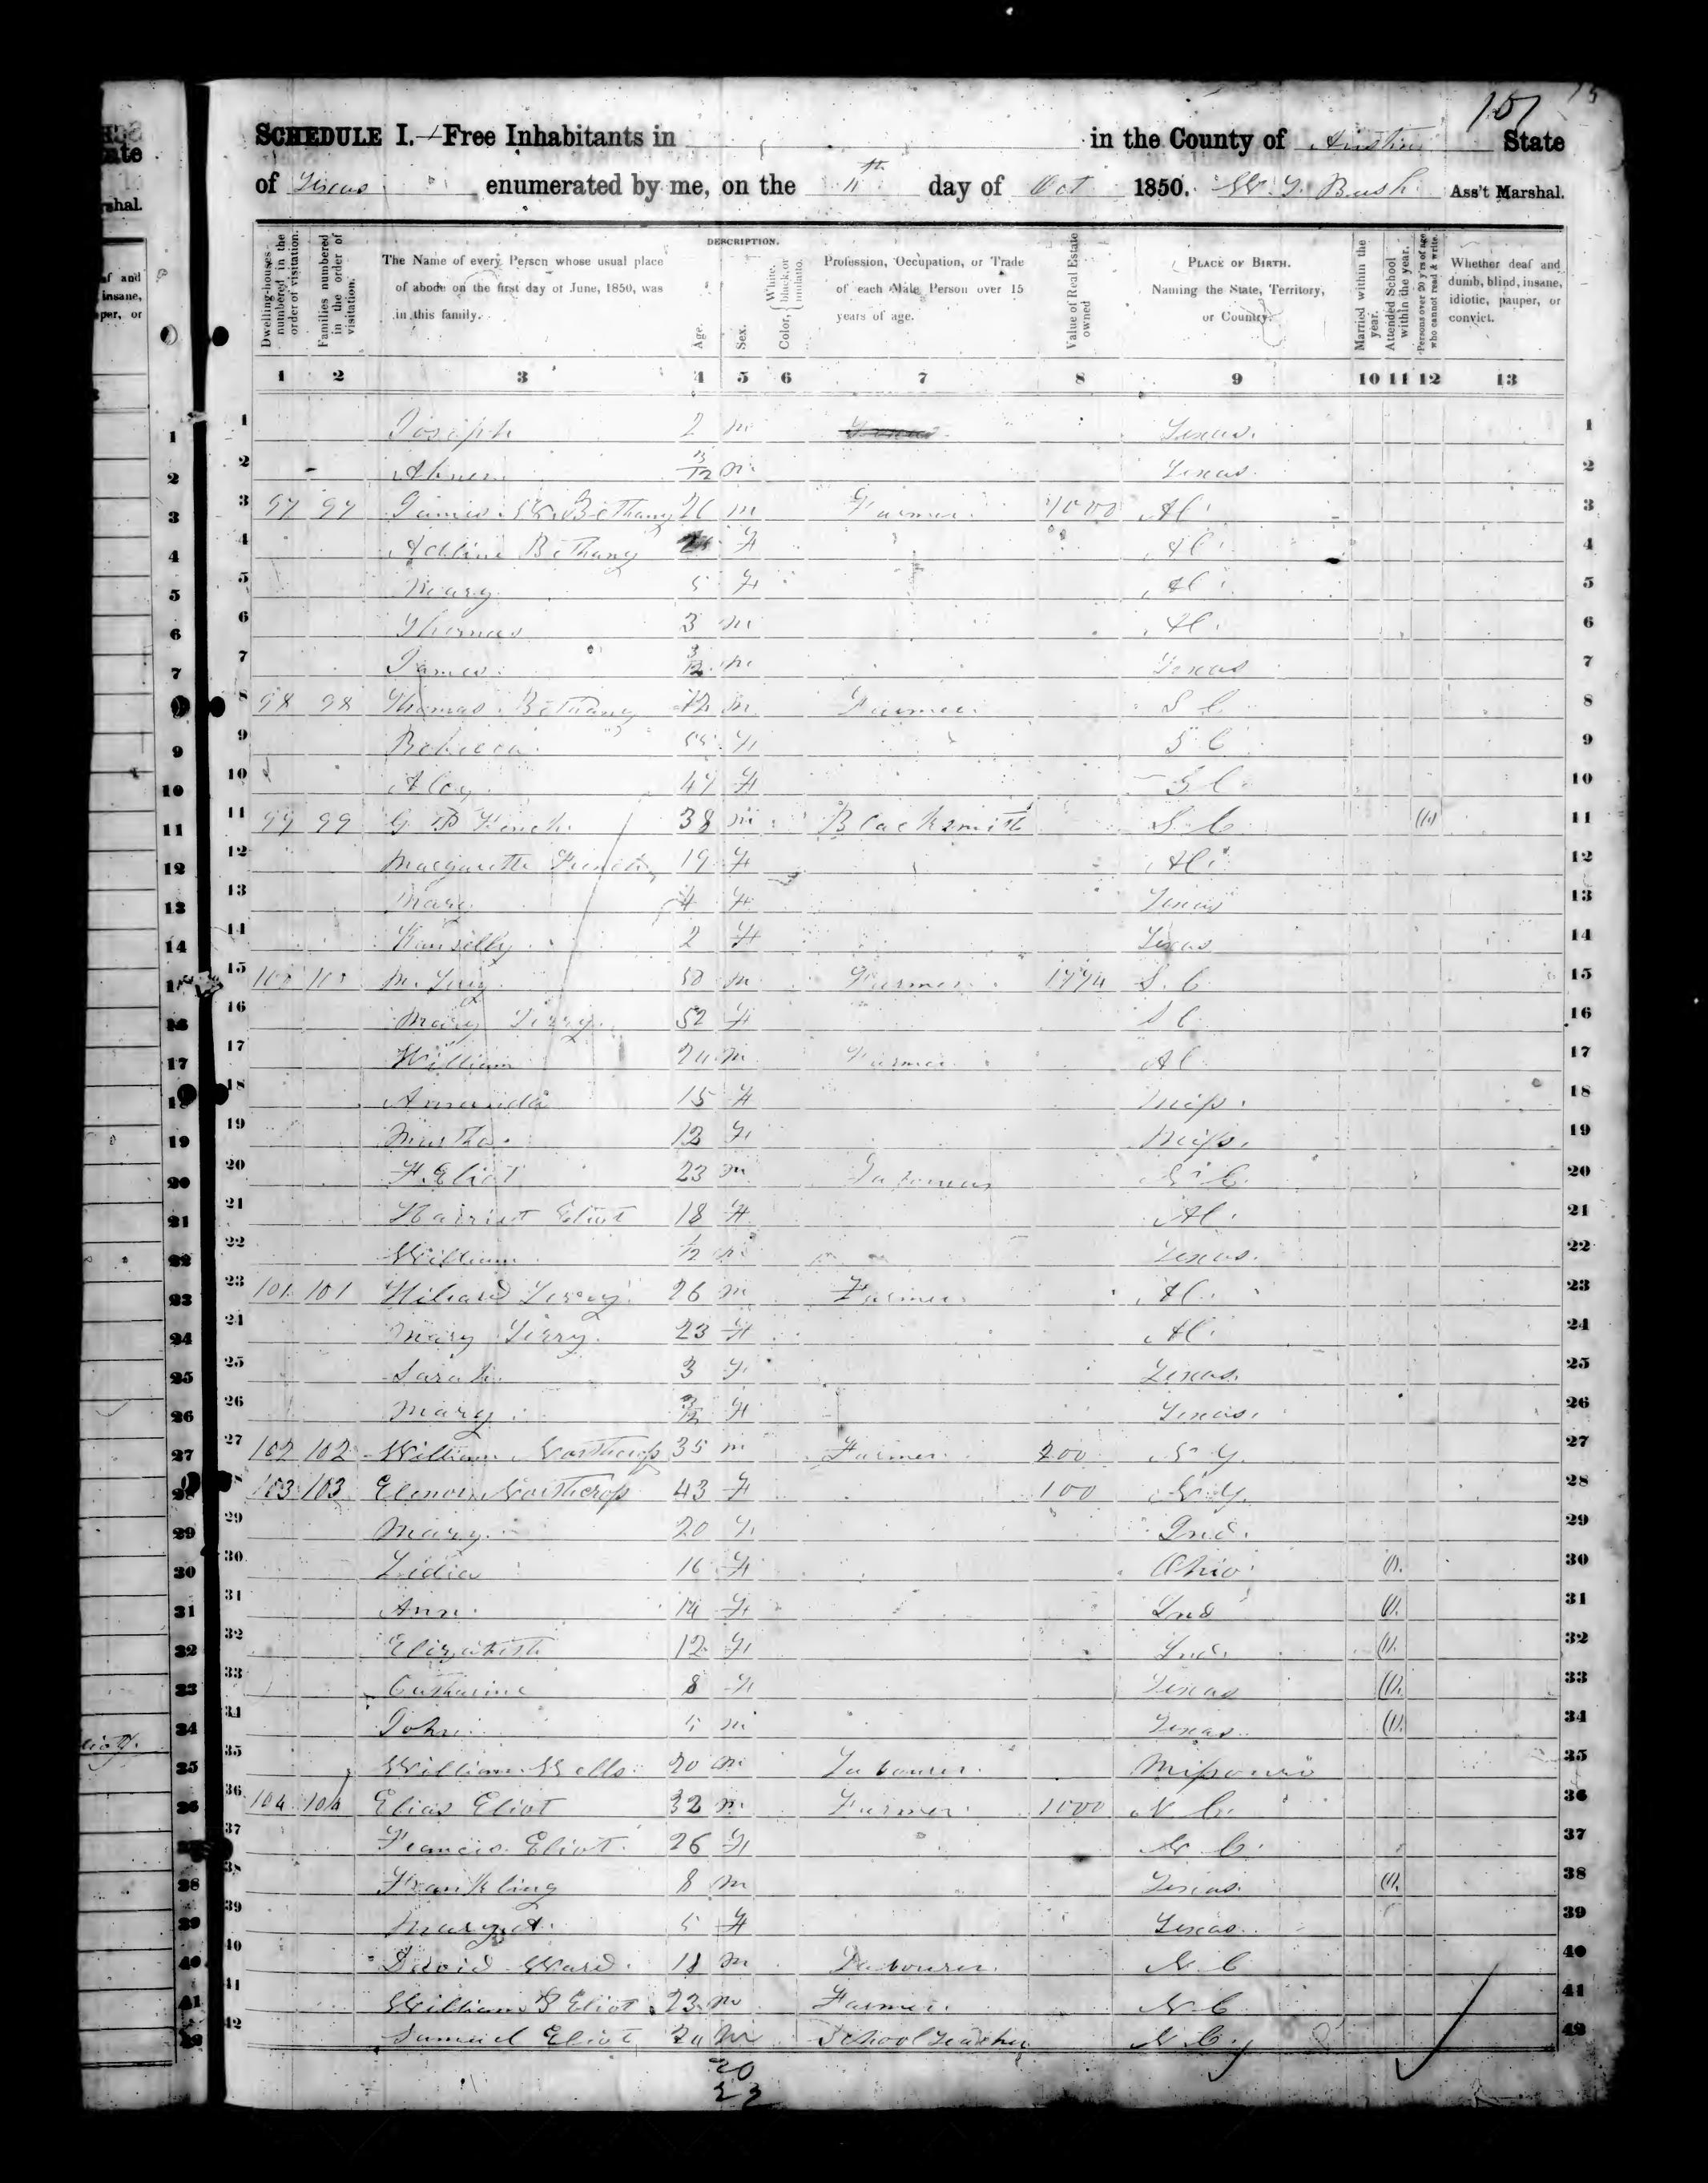 151
SCHEDULE I.—Free Inhabitants in in the County of Austin State
of Texas enumerated by me, on the 11th day of Oct 1850. W. Y. Bush Ass't Marshal.
Dwelling-houses numbered in the order of visitation.
Families numbered in the order of visitation.
The Name of every Person whose usual place of abode on the first day of June, 1850, was in this family.
DESCRIPTION.
Age.
Sex.
Color, White, black, or mulatto.
Profession, Occupation, or Trade of each Male Person over 15 years of age.
Value of Real Estate owned
PLACE OF BIRTH. Naming the State, Territory, or Country.
Married within the year.
Attended School within the year.
Persons over 20 y'rs of age who cannot read & write.
Whether deaf and dumb, blind, insane, idiotic, pauper, or convict.
1 2 3 4 5 6 7 8 9 10 11 12 13
1 Joseph 2 m Texas. 1
2 Abner 3/12 m Texas 2
3 97 97 James W. Bethany 26 m Farmer 1000 Al. 3
4 Adline Bethany F Al. 4
5 Mary 5 F Al. 5
6 Thomas 3 m Al. 6
7 James 3/12 m Texas 7
8 98 98 Thomas Bethany m Farmer S C 8
9 Rebecca 55 F S C 9
10 Alcy 47 F S C 10
11 99 99 G B French 38 m Blacksmith S. C. (1) 11
12 Margarette French 19 F Al. 12
13 Mary 4 F Texas 13
14 2 F Texas 14
15 100 100 M. Terry 50 m Farmer S. C. 15
16 Mary Terry 52 F S C 16
17 William 20 m Farmer Al 17
18 Amanda 15 F Miss. 18
19 Martha 12 F Miss. 19
20 F. Eliot 23 m N C. 20
21 Harriet Eliot 18 F Al. 21
22 William 1/12 m Texas. 22
23 101 101 Terry 26 m Farmer Al. 23
24 Mary Terry. 23 F Al. 24
25 Sarah 3 F Texas. 25
26 Mary 3/12 F Texas. 26
27 102 102 William Northcrop 35 m Farmer 200 N Y. 27
28 103 103 Elenor Northcrop 43 F 100 N. Y. 28
29 Mary 20 F Ind. 29
30 Lidia 16 F Ohio (1). 30
31 Ann 14 F Ind (1). 31
32 Elizabeth 12 F Ind. (1). 32
33 Catharine 8 F Texas (1). 33
34 John 5 m Texas (1). 34
35 William Wells 20 m Labourer. Missouri 35
36 104 104 Elias Eliot 32 m Farmer 1000 N C. 36
37 Francis Eliot. 26 F N C. 37
38 Frankling 8 m Texas. (1). 38
39 Margret 5 F Texas 39
40 David Ward. 18 m Labourer. N C 40
41 William B Eliot 23 m Farmer. N C 41
42 Samuel Eliot 20 m School Teacher N. C 42
20
23